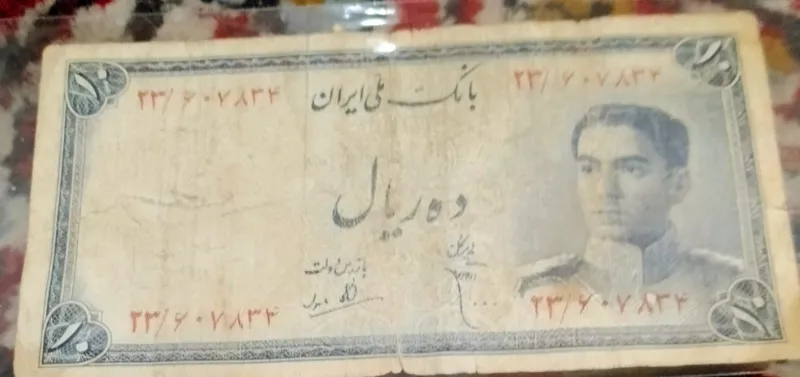 ۱۰ ۱۰
۲۳/۶۰۷۸۳۴ بانک ملی ایران ۲۳/۶۰۷۸۳۴
ده ریال
بازرس دولت مدیر کل
۲۳/۶۰۷۸۳۴ ۲۳/۶۰۷۸۳۴
۱۰ ۱۰